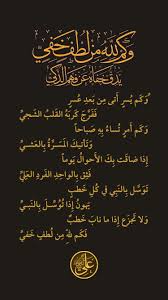 وَكَم لِلَّهِ مِن لُطفٍ خَفيٍّ
يَدِقُّ خَفاهُ عَن فَهمِ الذَكيِّ
وَكَم يُسرٍ أَتى مِن بَعدِ عُسرٍ
فَفَرَّجَ كُربَهُ القَلبُ الشَجيِّ
وَكَم أَمرٍ تُساءُ بِهِ صَباحاً
وَتَأتيكَ المَسَرَّةُ بِالعَشيِّ
إِذا ضاقَت بِكَ الأَحوالُ يَوماً
فَثِق بِالواحِدِ الفَردِ العَليِّ
تَوَسَّل بِالنَبيِّ في كُلِّ خَطبٍ
يَهونُ إِذا تُوُسِّلَ بِالنَبيِّ
وَلا تَجزَع إِذا ما نابَ خَطبٌ
فَكَم لِلَّهِ مِن لُطفٍ خَفيِّ